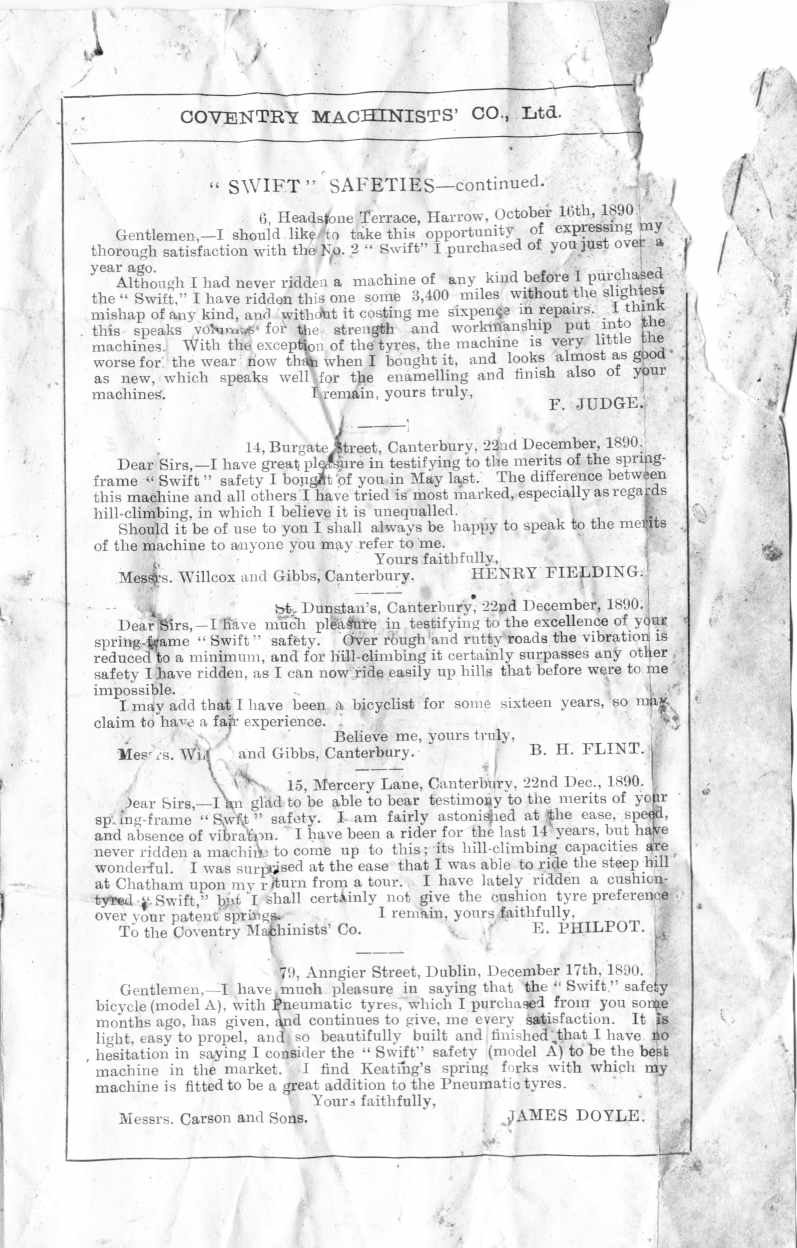 COVENTRY MACHINISTS' CO., Ltd.
“ SWIFT ” SAFETIES—continued.
6, Headstone Terrace, Harrow, October 16th, 1890.
Gentlemen,—I should like to take this opportunity of expressing my
thorough satisfaction with the No. 2 “ Swift” I purchased of you just over a
year ago.
Although I had never ridden a machine of any kind before I purchased
the “ Swift,” I have ridden this one some 3,400 miles without the slightest
mishap of any kind, and without it costing me sixpence in repairs. I think
this speaks volumes for the strength and workmanship put into the
machines. With the exception of the tyres, the machine is very little the
worse for the wear now than when I bought it, and looks almost as good
as new, which speaks well for the enamelling and finish also of your
machines. I remain, yours truly,
F. JUDGE.
14, Burgate Street, Canterbury, 22nd December, 1890.
Dear Sirs,—I have great pleasure in testifying to the merits of the spring-
frame “ Swift” safety I bought of you in May last. The difference between
this machine and all others I have tried is most marked, especially as regards
hill-climbing, in which I believe it is unequalled.
Should it be of use to you I shall always be happy to speak to the merits
of the machine to anyone you may refer to me.
Yours faithfully,
Messrs. Willcox and Gibbs, Canterbury. HENRY FIELDING.
St. Dunstan's, Canterbury, 22nd December, 1890.
Dear Sirs,—I have much pleasure in testifying to the excellence of your
spring-frame “ Swift” safety. Over rough and rutty roads the vibration is
reduced to a minimum, and for hill-climbing it certainly surpasses any other
safety I have ridden, as I can now ride easily up hills that before were to me
impossible.
I may add that I have been a bicyclist for some sixteen years, so may
claim to have a fair experience.
Believe me, yours truly,
Messrs. and Gibbs, Canterbury. B. H. FLINT.
15, Mercery Lane, Canterbury, 22nd Dec., 1890.
Dear Sirs,—I am glad to be able to bear testimony to the merits of your
spring-frame “ Swift ” safety. I am fairly astonished at the ease, speed,
and absence of vibration. I have been a rider for the last 14 years, but have
never ridden a machine to come up to this; its hill-climbing capacities are
wonderful. I was surprised at the ease that I was able to ride the steep hill
at Chatham upon my return from a tour. I have lately ridden a cushion-
tyred “ Swift,” but I shall certainly not give the cushion tyre preference
over your patent springs. I remain, yours faithfully,
To the Coventry Machinists' Co. E. PHILPOT.
79, Anngier Street, Dublin, December 17th, 1890.
Gentlemen,—I have much pleasure in saying that the “ Swift” safety
bicycle (model A), with Pneumatic tyres, which I purchased from you some
months ago, has given, and continues to give, me every satisfaction. It is
light, easy to propel, and so beautifully built and finished that I have no
hesitation in saying I consider the “ Swift” safety (model A) to be the best
machine in the market. I find Keating's spring forks with which my
machine is fitted to be a great addition to the Pneumatic tyres.
Yours faithfully,
Messrs. Carson and Sons. JAMES DOYLE.